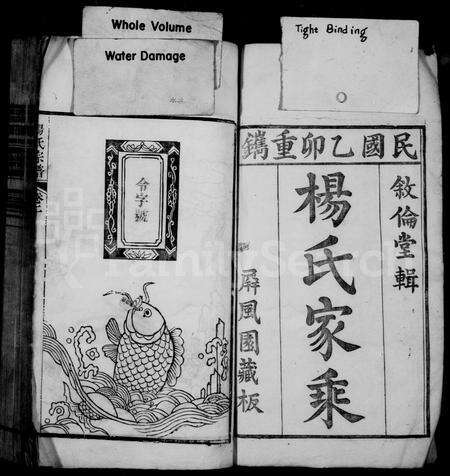 Whole Volume
Water Damage
Tight Binding
民國乙卯重鐫
敘倫堂輯
楊氏家乘
屏風園藏板
令字號
楊氏宗譜
FamilySearch